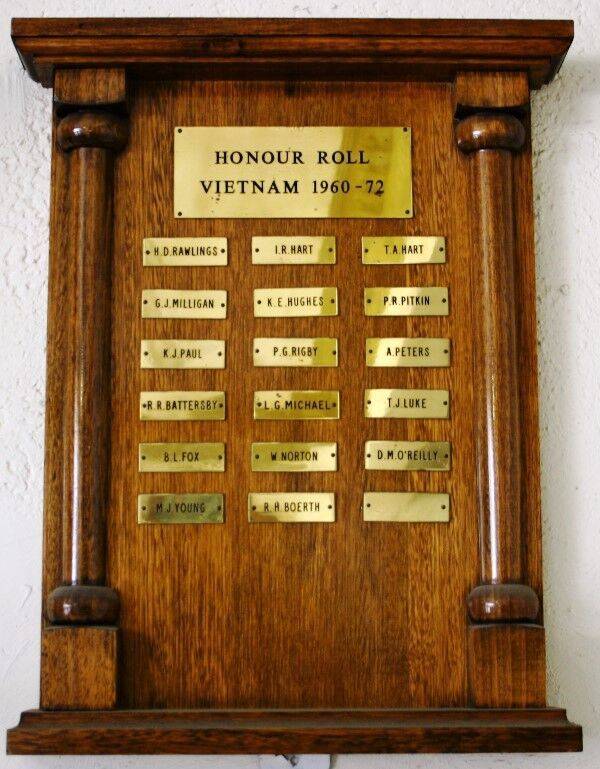 HONOUR ROLL
VIETNAM 1960-72
H.D.RAWLINGS
I.R.HART
T.A.HART
G.J.MILLIGAN
K.E.HUGHES
P.R.PITKIN
K.J.PAUL
P.G.RIGBY
A.PETERS
R.R.BATTERSBY
L.G.MICHAEL
T.J.LUKE
B.L.FOX
W.NORTON
D.M.O'REILLY
M.J.YOUNG
R.H.BOERTH